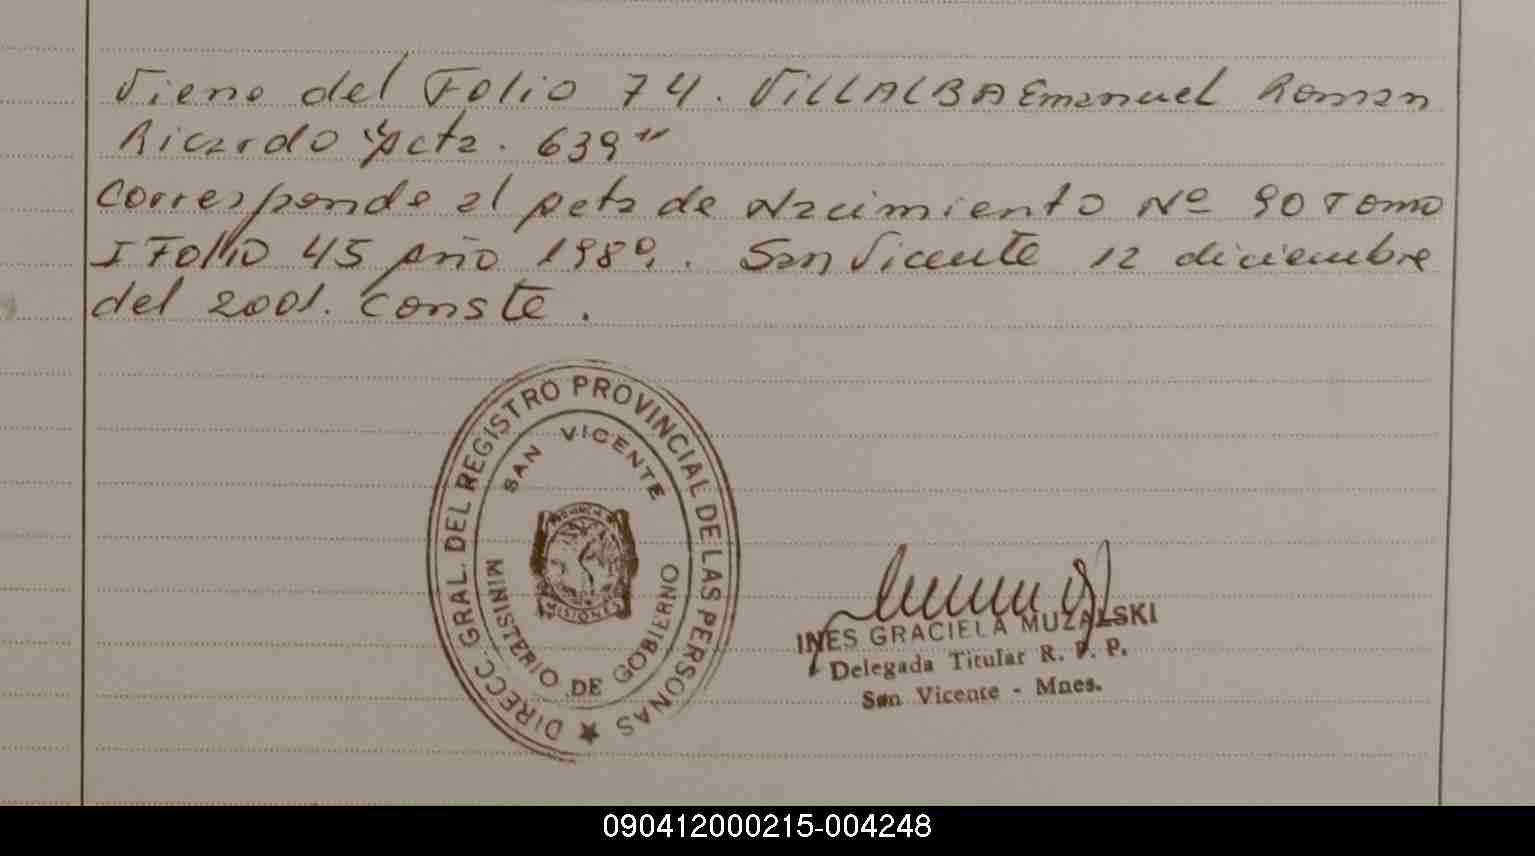 Viene del Folio 74. VILLALBA Emanuel Roman
Ricardo "Acta. 639"
Corresponde al Acta de Nacimiento Nº 90 Tomo
I Folio 45 Año 1989. San Vicente 12 diciembre
del 2001. Conste.
DIRECC. GRAL. DEL REGISTRO PROVINCIAL DE LAS PERSONAS
SAN VICENTE
PROVINCIA DE
MISIONES
MINISTERIO DE GOBIERNO
INES GRACIELA MUZALSKI
Delegada Titular R. P. P.
San Vicente - Mnes.
090412000215-004248